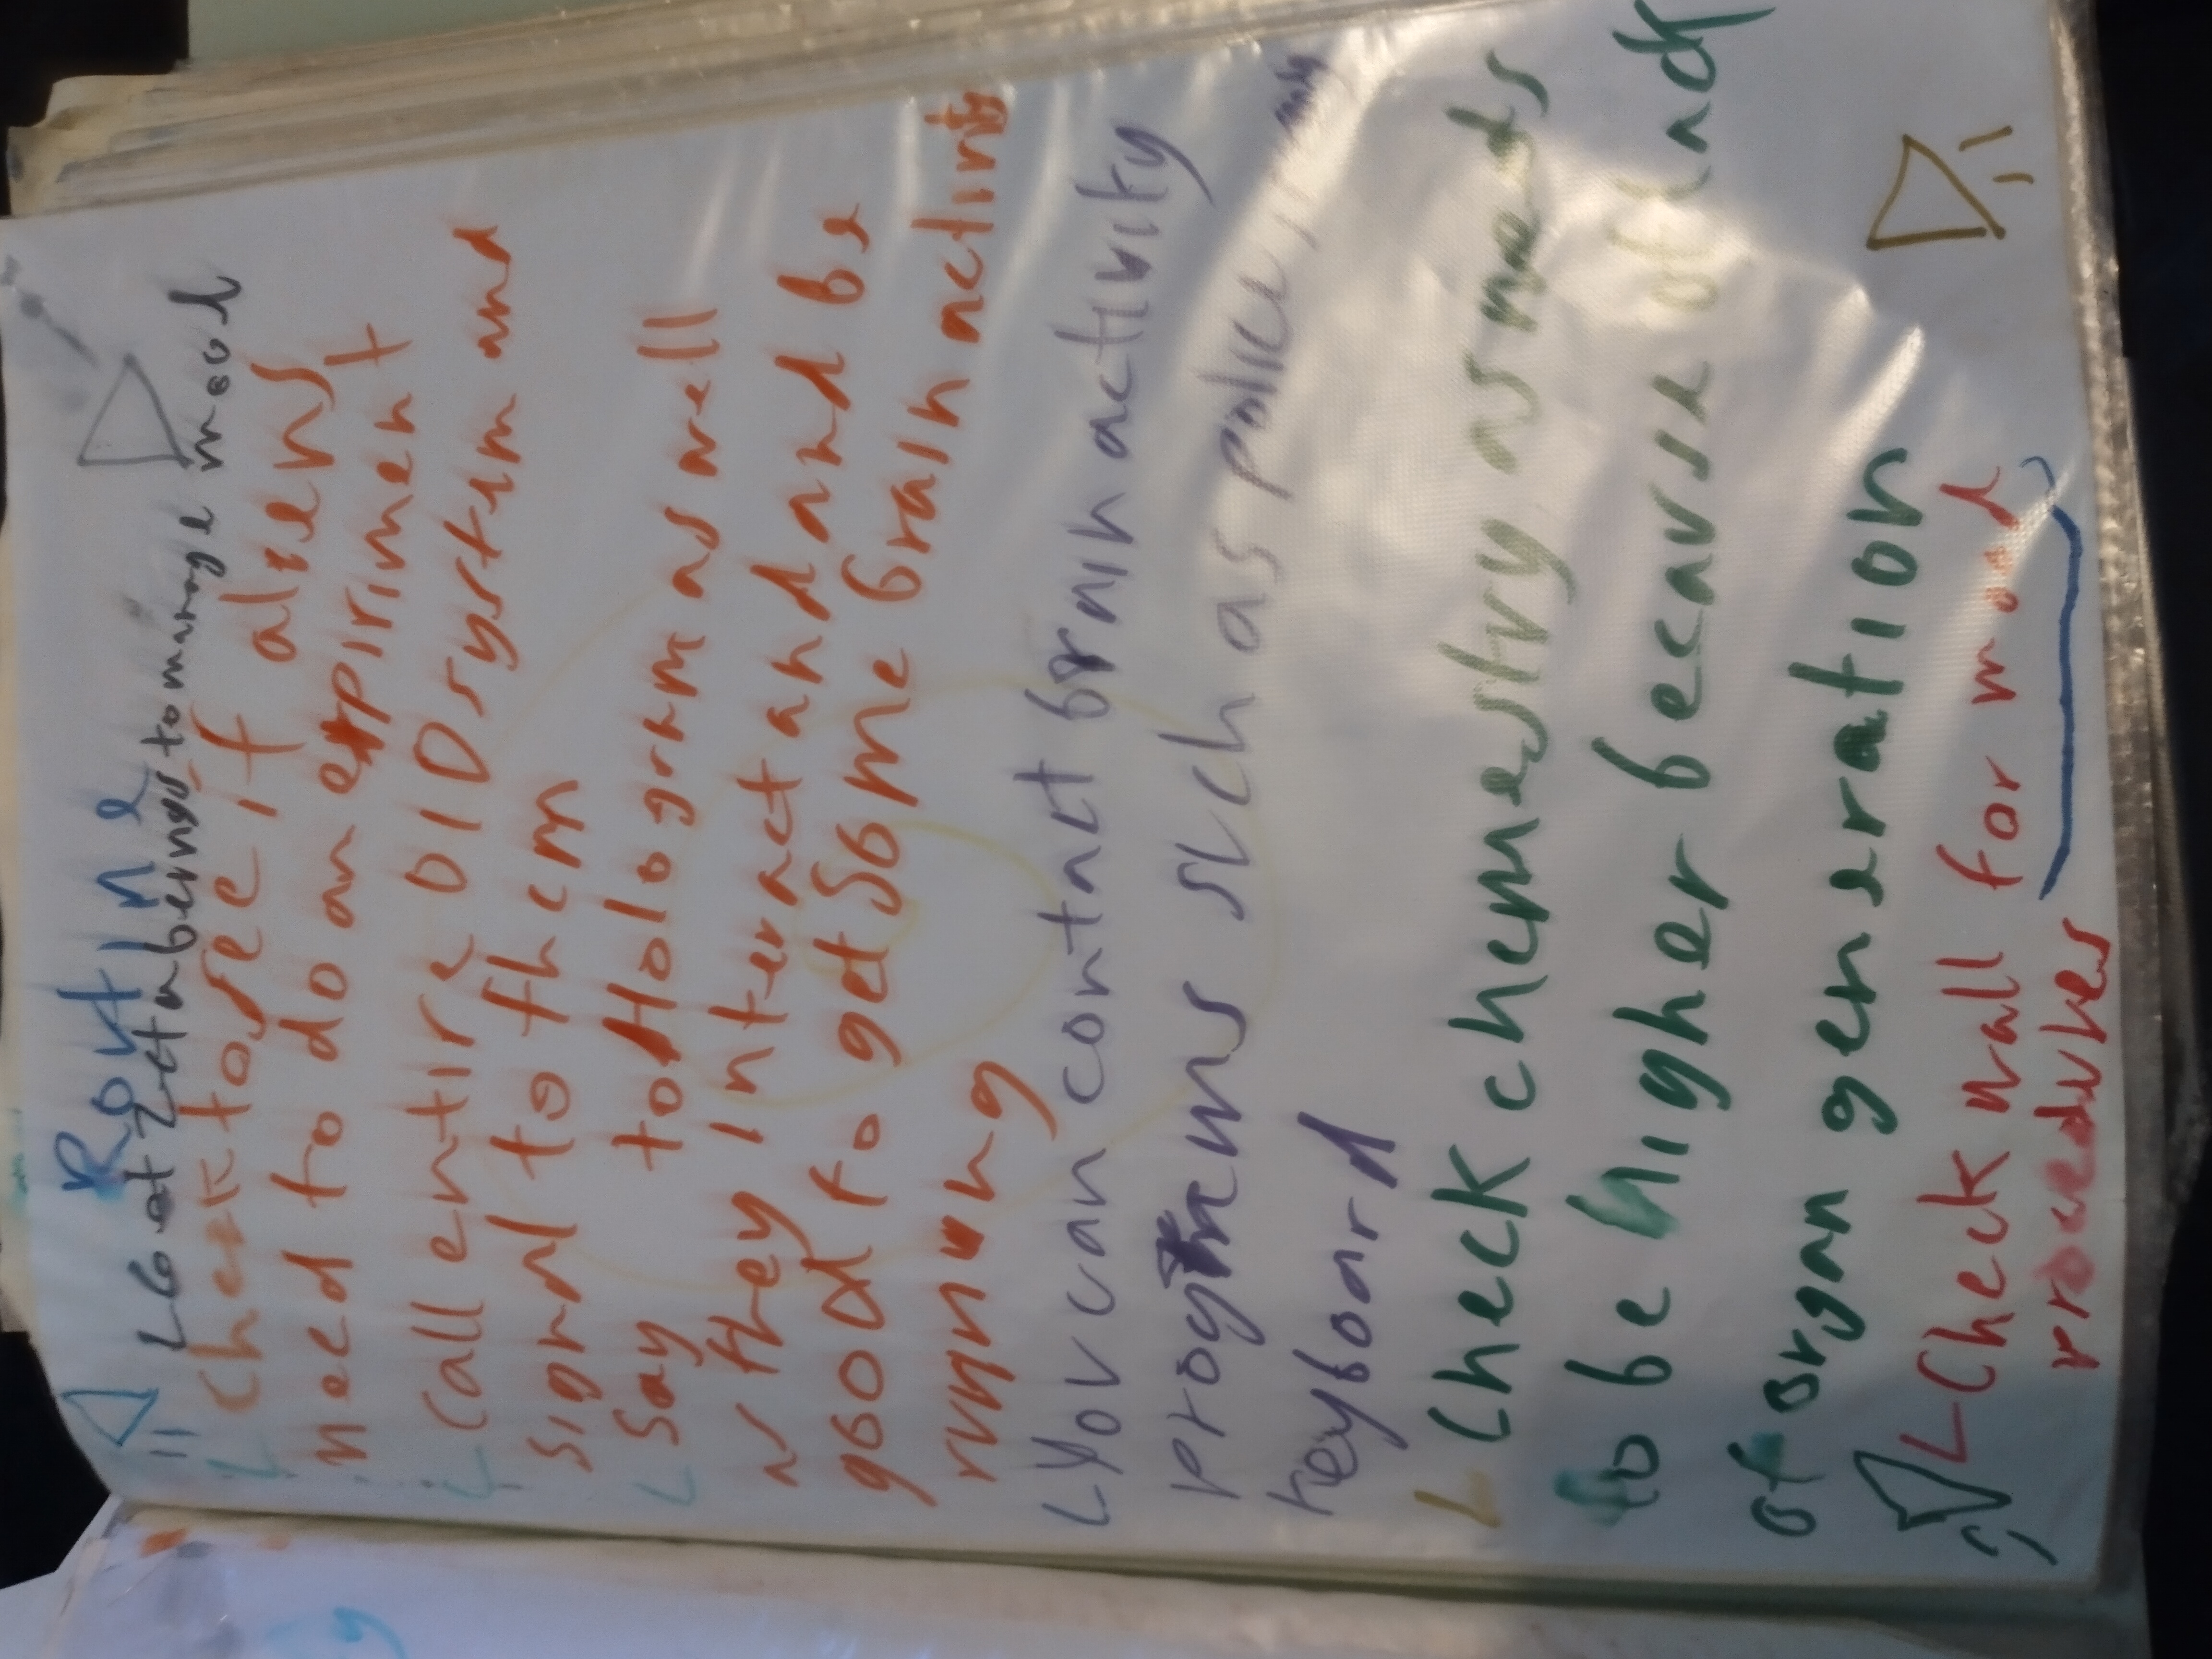 Routine
L Go at Zeta beings to manage mood
L check to see if aliens
need to do an expiriment
L call entire OID system and
signal to them
L Say to Hologram as well
as they interact and be
good to get some brain activity
running
L You can contact brain activity
programs such as police, my
keyboard
L Check chemestry as needs
to be higher because of lack
of organ generation
L Check wall for mood
procedures